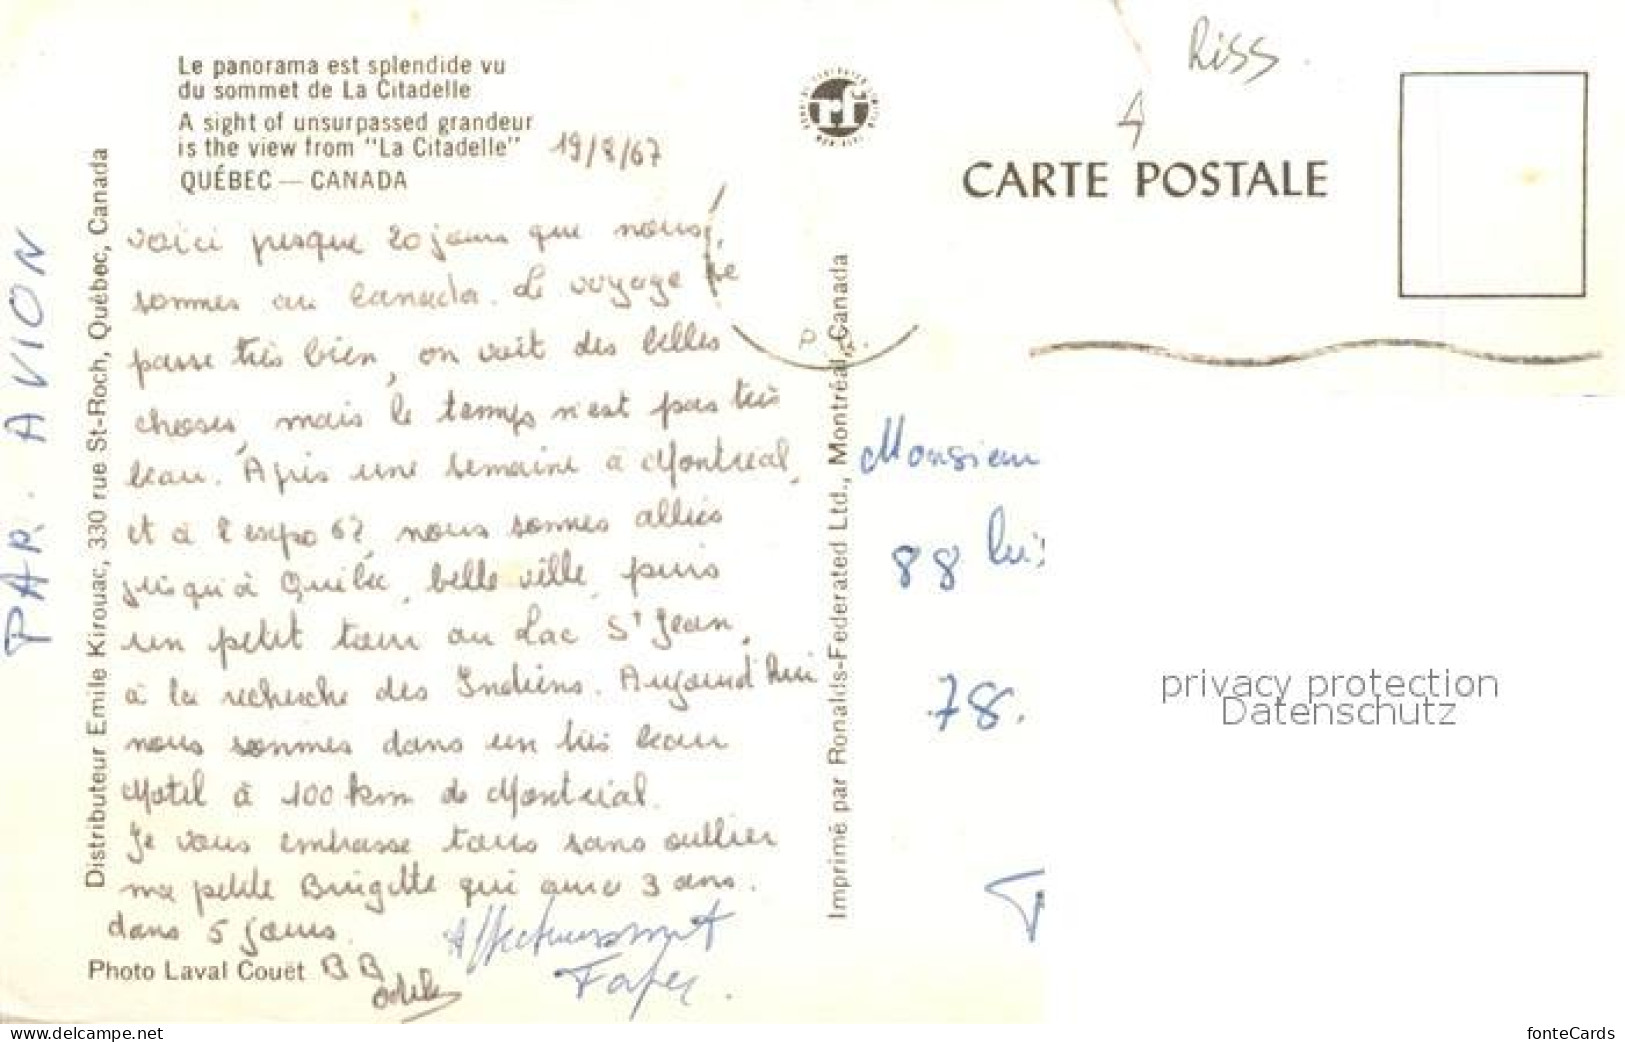 Le panorama est splendide vu
du sommet de La Citadelle
A sight of unsurpassed grandeur
is the view from "La Citadelle"
QUÉBEC — CANADA
19/8/67
voici presque 20 jours que nous
sommes au Canada. Le voyage se
passe très bien, on voit des belles
choses, mais le temps n'est pas très
beau. Après une semaine à Montréal,
et à l'expo 67 nous sommes allées
jusqu'à Québec, belle ville, puis
un petit tour au Lac St Jean,
à la recherche des Indiens. Aujourd'hui
nous sommes dans un très beau
Motel à 100 km de Montréal.
Je vous embrasse tous sans oublier
ma petite Brigitte qui aura 3 ans.
dans 5 jours.
Affectueusement
Photo Laval Couët
PAR AVION
Distributeur Emile Kirouac, 330 rue St-Roch, Québec, Canada
Imprimé par Ronalds-Federated Ltd., Montréal, Canada
rf
Riss.
4
CARTE POSTALE
Monsieur
88
78.
privacy protection
Datenschutz
www.delcampe.net
fonteCards